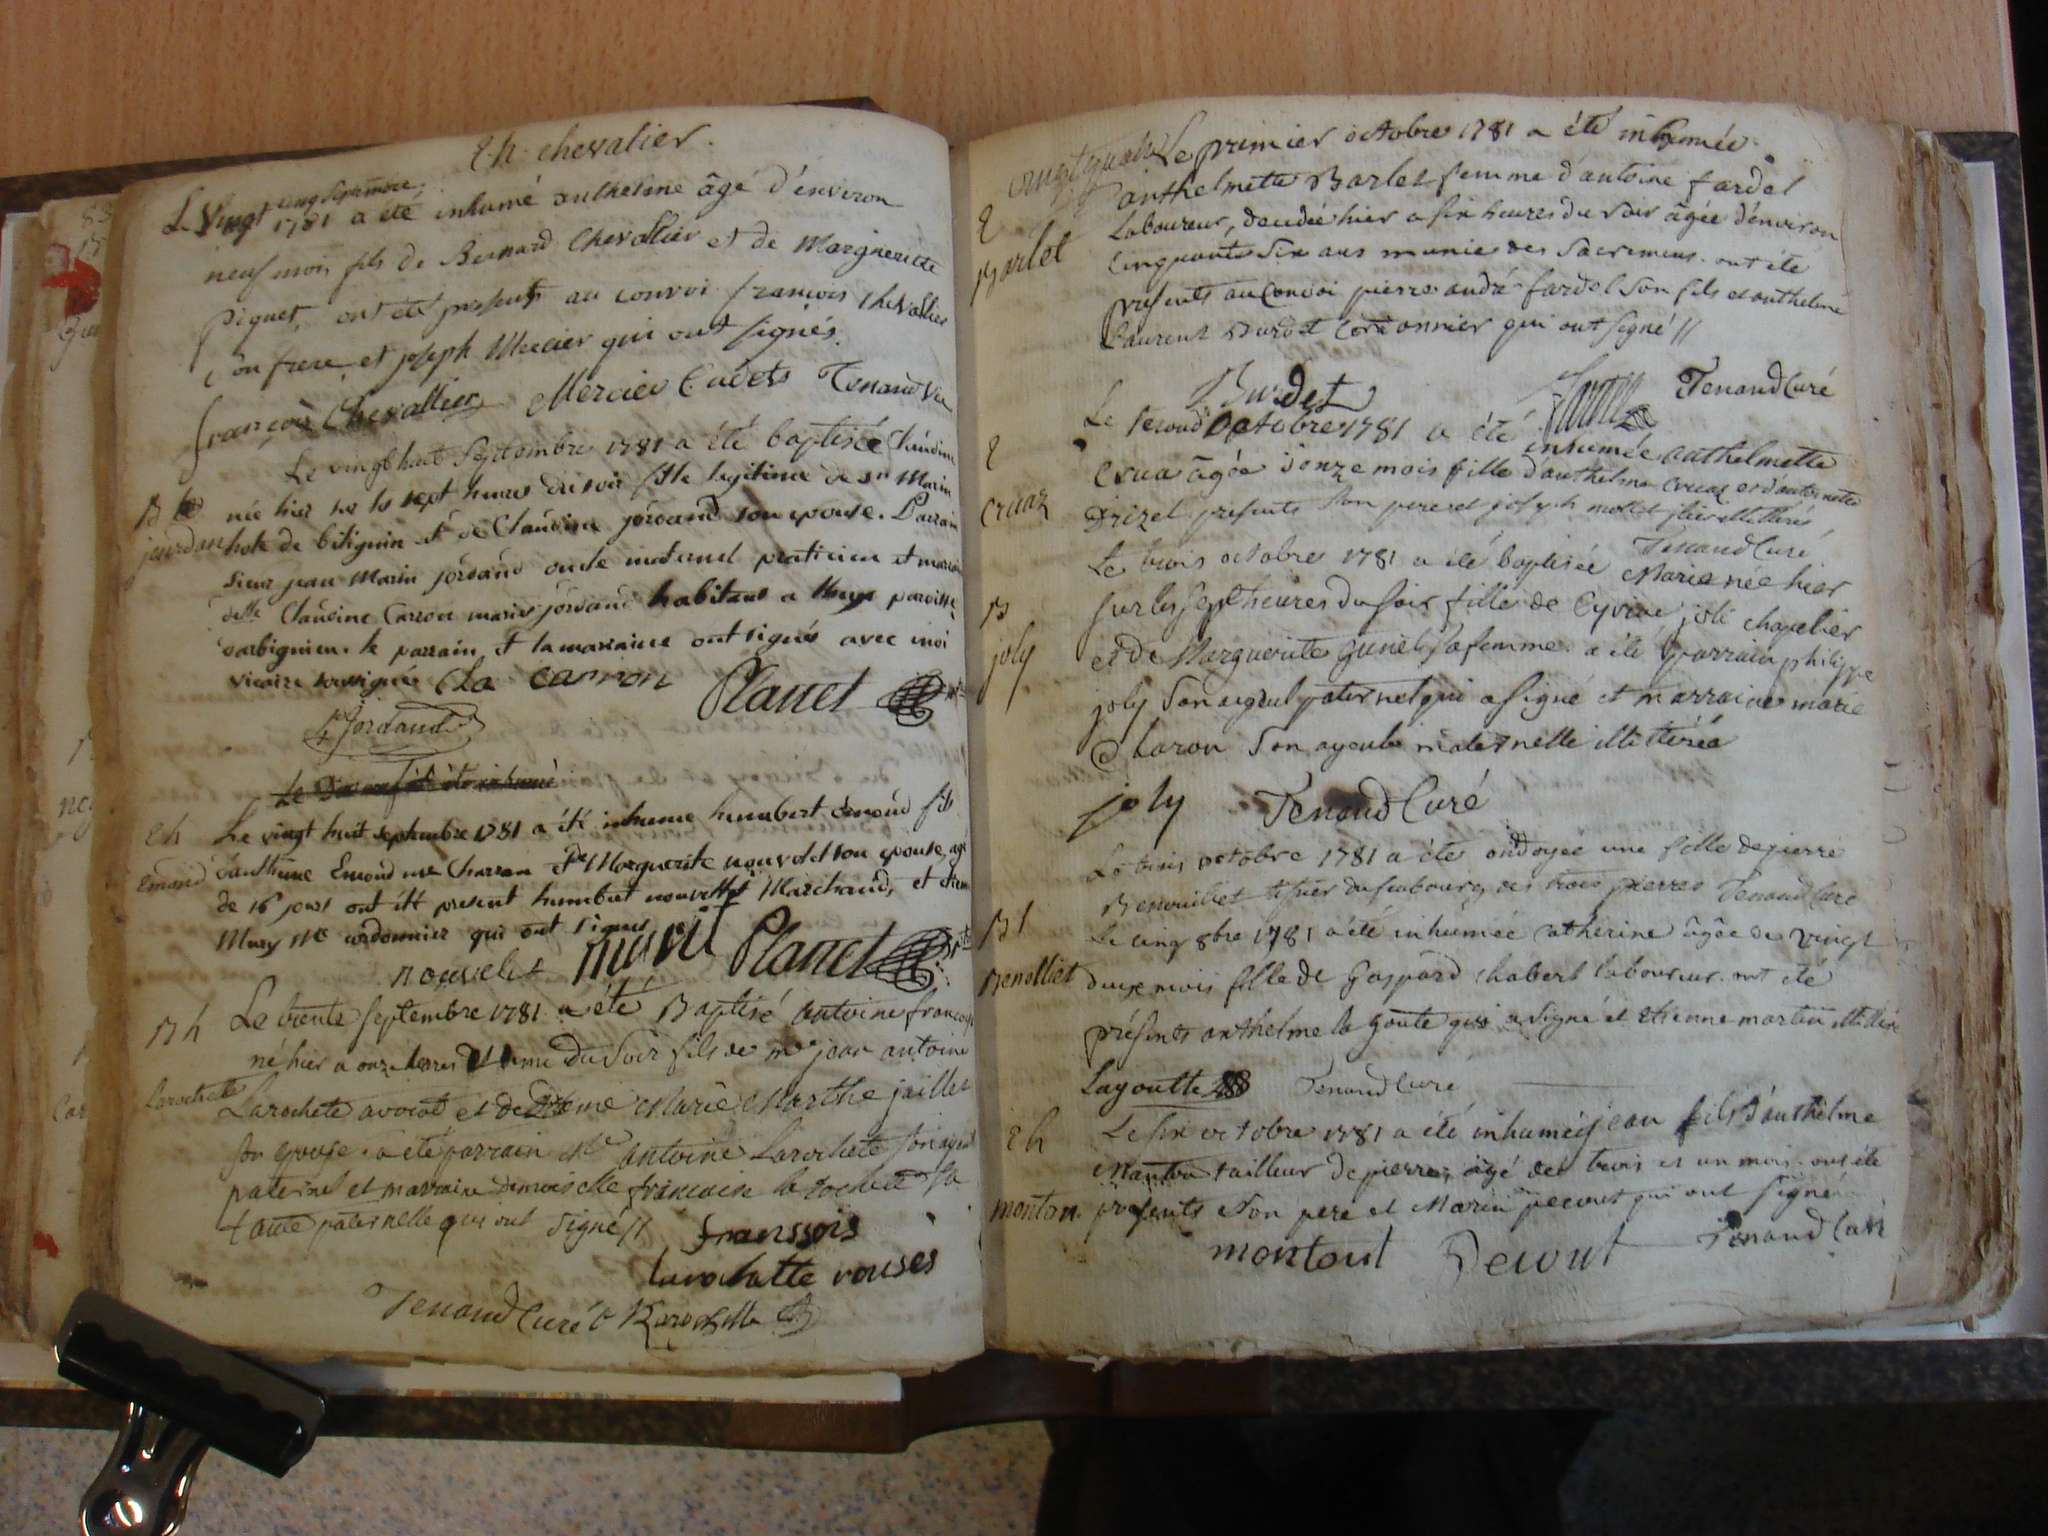 Eh chevalier.
Le Vingt cinq Septembre
1781 a été inhumé anthelme âgé d'environ
neuf mois fils de Bernard Chevallier et de Margueritte
Piquet, ont été présents au convoi françois chevallier
son frere et joseph Mercier qui ont signés.
françois Chevallier Mercier Cadets Tenand
Le vingt huit Septembre 1781 a été baptisée Claudine
née hier sur les sept heures du soir fille legitime de sr Marin
jourdan hote de et de Claudine jordand son epouse. Parrain
sieur jean Marin jordand oncle maternel praticien et marraine
delle Claudine Carron mariée jordand habitans a paroisse
le parrain et la marraine ont signés avec moi
vicaire soussigné La carron Planet
jordand
Le a été inhumé
Eh Le vingt huit septembre 1781 a été inhumé humbert émond fils
Emond d'anthelme Emond me Charron et de Marguerite nouvelet son epouse, agé
de 16 jours ont été present humbert nouvellet Marchand, et
Mury Me cordonnier qui ont signés
nouvelet Planet
Bh Le trente septembre 1781 a été Baptisé antoine françois
né hier a onze heures du soir fils de me jean antoine
Larochette Larochete avocat et de dame Marie Marthe jaillet
son epouse a été parrain Me antoine Larochete son ayeul
paternel et marraine demoiselle francoise la rochette sa
tante paternelle qui ont signé //
franssois
larochatte rouses
Tenand Curé Larochette
Le premier octobre 1781 a été inhumée
anthelmette Barlet femme d'antoine fardel
E Laboureur, decedée hier a six heures du soir âgée d'environ
Barlet cinquante six ans munie des Sacremens. ont été
présents au Convoi pierre andré fardel son fils et anthelme
Laurent Burdet Cordonnier qui ont signé //
Burdet Tenand Curé
Le second octobre 1781 a été inhumée anthelmette
E Cruaz âgée d'onze mois fille d'anthelme Cruaz et d'antoinette
cruaz Drizet presents son pere et joseph mollet illitterés
Tenand Curé
Le trois octobre 1781 a été baptisée Marie née hier
B sur les sept heures du soir fille de Cyvrac joli chapelier
joly et de Marguerite sa femme. a été parrain philippe
joly son ayeul paternel qui a signé et marraine marie
son ayeule maternelle illitterée
joly Tenand Curé
Le trois octobre 1781 a été ondoyée une fille de pierre
Benouilliet tissier du faubourg des trois pierres Tenand Curé
Bt Le cinq 8bre 1781 a été inhumée Catherine âgée de vingt
Benolliet deux mois fille de Gaspard chabert laboureur. ont été
présents anthelme la goute qui a signé et etienne martin
Lagoutte Tenand Curé
Eh Le six octobre 1781 a été inhumé jean fils d'anthelme
tailleur de pierres, âgé de trois et un mois. ont été
monton présents son pere et Marin pecout qui ont signé
montout Pecout Tenand Curé